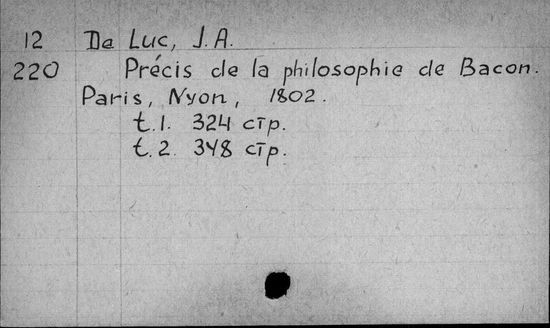 12 De Luc, J.A.
220 Précis de la philosophie de Bacon.
Paris, Nyon, 1802.
t.1. 324 стр.
t.2. 348 стр.